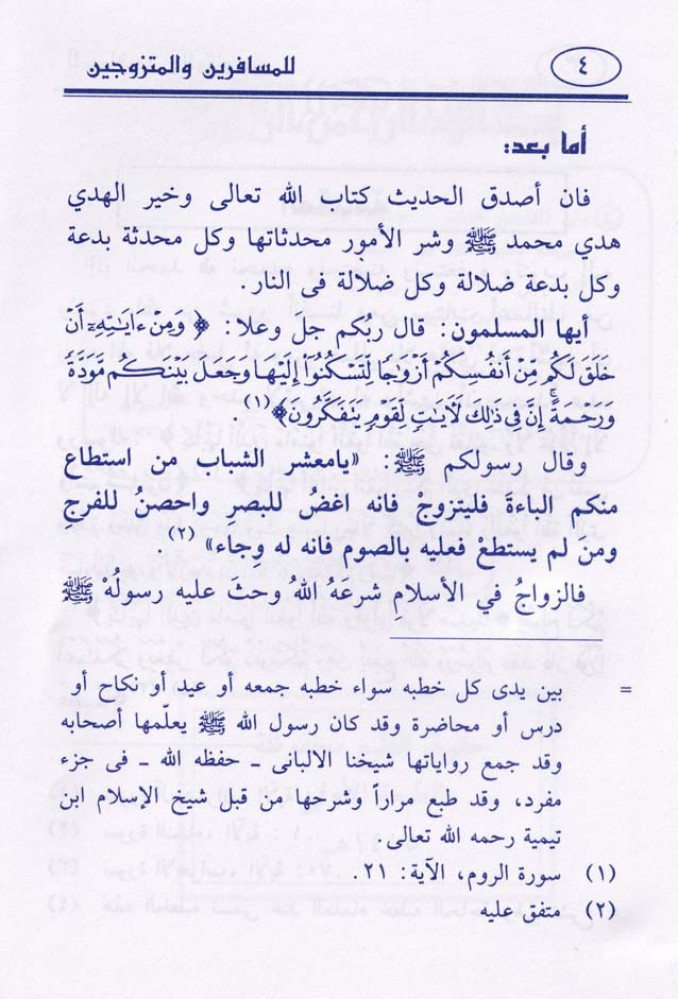 ٤
للمسافرين والمتزوجين
أما بعد:
فان أصدق الحديث كتاب الله تعالى وخير الهدي
هدي محمد ﷺ وشر الأمور محدثاتها وكل محدثة بدعة
وكل بدعة ضلالة وكل ضلالة فى النار.
أيها المسلمون: قال ربكم جل وعلا: ﴿وَمِنْ ءَايَٰتِهِۦٓ أَنْ
خَلَقَ لَكُم مِّنْ أَنفُسِكُمْ أَزْوَٰجًا لِّتَسْكُنُوٓا۟ إِلَيْهَا وَجَعَلَ بَيْنَكُم مَّوَدَّةً
وَرَحْمَةً ۚ إِنَّ فِى ذَٰلِكَ لَءَايَٰتٍ لِّقَوْمٍ يَتَفَكَّرُونَ﴾(١).
وقال رسولكم ﷺ: «يامعشر الشباب من استطاع
منكم الباءةَ فليتزوج فانه اغضُ للبصرِ واحصنُ للفرج
ومن لم يستطعْ فعليه بالصوم فانه له وجاء» (٢).
فالزواجُ في الأسلامِ شرعَهُ اللهُ وحثَ عليه رسولُهُ ﷺ
= بين يدى كل خطبه سواء خطبه جمعه أو عيد أو نكاح أو
درس أو محاضرة وقد كان رسول الله ﷺ يعلّمها أصحابه
وقد جمع رواياتها شيخنا الالبانى ـ حفظه الله ـ فى جزء
مفرد، وقد طبع مراراً وشرحها من قبل شيخ الإسلام ابن
تيمية رحمه الله تعالى.
(١) سورة الروم، الآية: ٢١.
(٢) متفق عليه